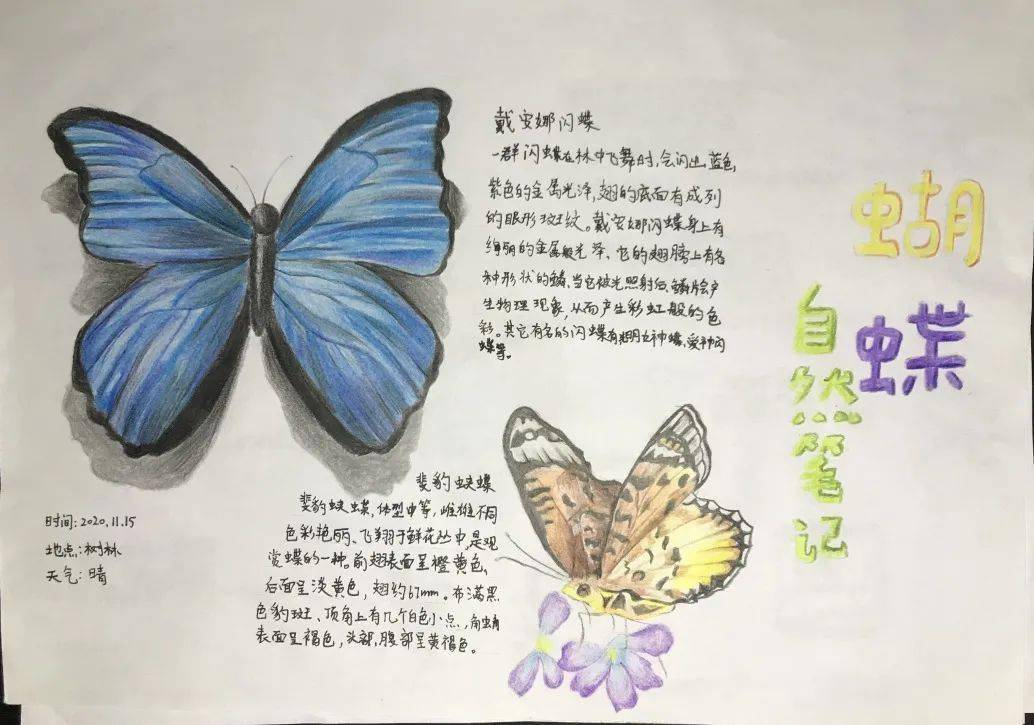 蝴蝶
自然笔记
戴安娜闪蝶
一群闪蝶在林中飞舞时,会闪出蓝色,
紫色的金属光泽,翅的底面有成列
的眼形斑纹。戴安娜闪蝶身上有
绚丽的金属般光泽、它的翅膀上有各
种形状的鳞,当它被光照射后,鳞片会产
生物理现象,从而产生彩虹般的色
彩。其它有名的闪蝶有月女神蝶、
蝶等。
斐豹蛱蝶
斐豹蛱蝶,体型中等,雌雄不同
色彩艳丽、飞翔于鲜花丛中,是观
赏蝶的一种。前翅表面呈橙黄色,
后面呈淡黄色,翅约67mm。布满黑
色豹斑、顶角上有几个白色小点,角
表面呈褐色,头部,腹部呈黄褐色。
时间:2020.11.15
地点:树林
天气:晴